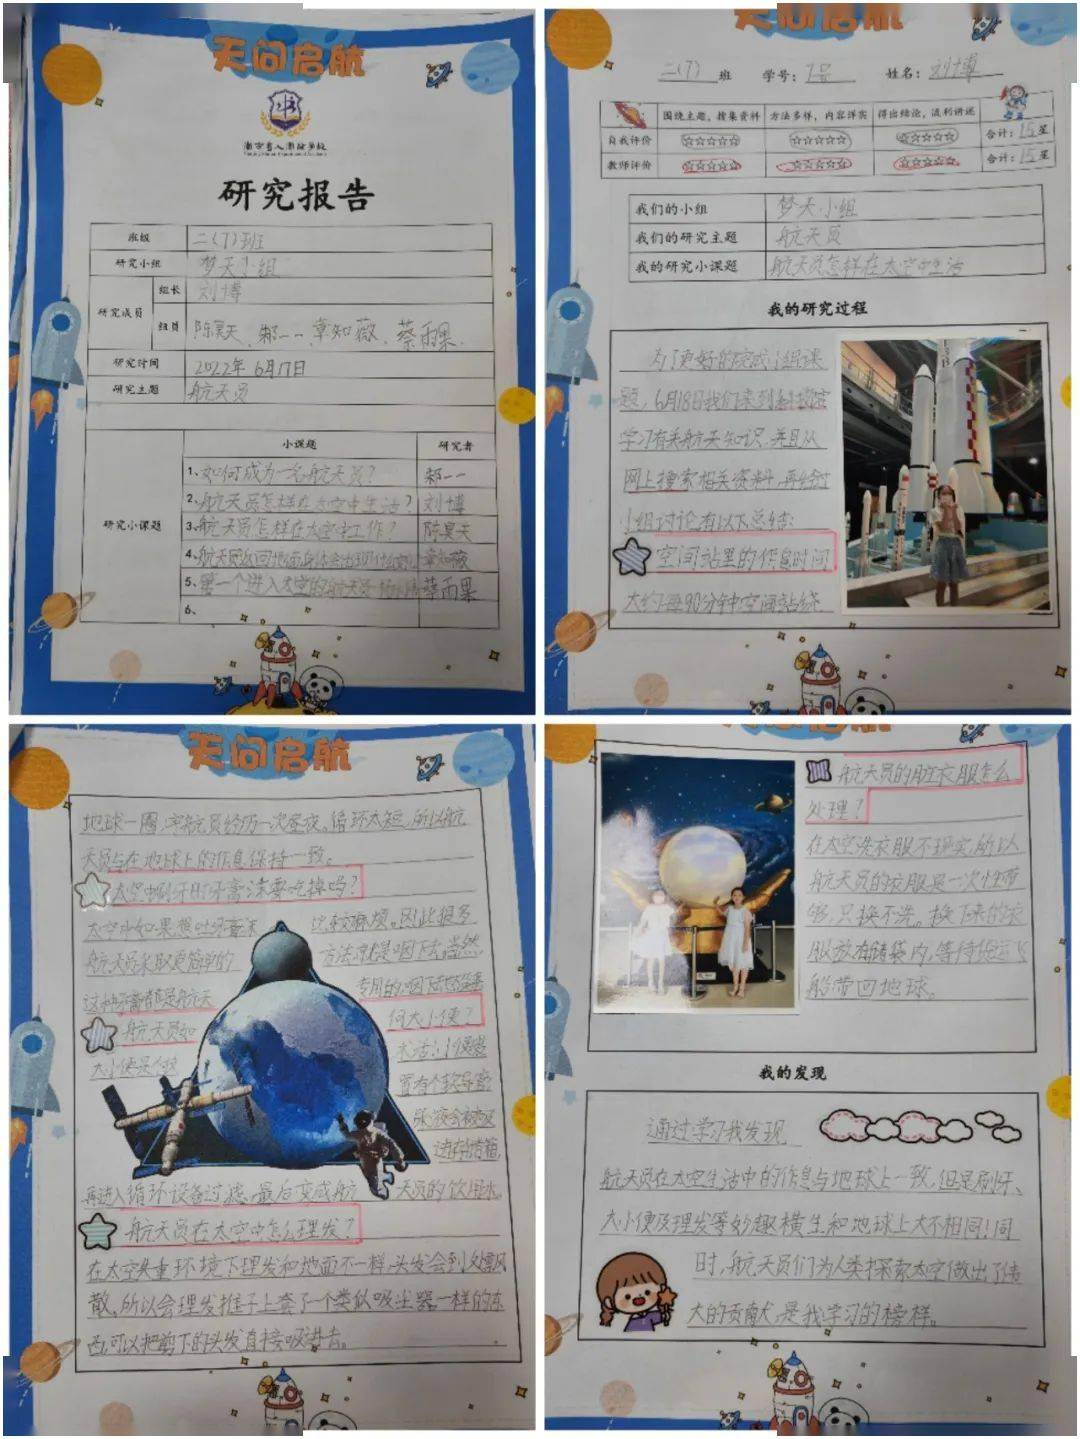 天问启航
研究报告
班级 二(7)班
研究小组 梦天小组
研究成员 组长 刘博
组员 陈昊天、郝一一、章知薇、蔡雨果
研究时间 2022年6月17日
研究主题 航天员
小课题 研究者
研究小课题
1、如何成为一名航天员? 郝一一
2、航天员怎样在太空中生活? 刘博
3、航天员怎样在太空中工作? 陈昊天
4、航天员返回地面身体会出现什么 章知薇
5、第一个进入太空的航天员 蔡雨果
6、
天问启航
二(7)班 学号:7号 姓名:刘博
围绕主题,搜集资料 方法多样,内容详实 得出结论,流利讲述
自我评价 ☆☆☆☆☆ ☆☆☆☆☆ ☆☆☆☆☆ 合计:15星
教师评价 ☆☆☆☆☆ ☆☆☆☆☆ ☆☆☆☆☆ 合计:15星
我们的小组 梦天小组
我们的研究主题 航天员
我的研究小课题 航天员怎样在太空中生活
我的研究过程
为了更好的完成小组课
题,6月18日我们来到科技馆
学习有关航天知识,并且从
网上搜索相关资料,再经过
小组讨论有以下总结:
空间站里的作息时间
大约每90分钟空间站绕
天问启航
地球一圈,宇航员经历一次昼夜。循环太短,所以航
天员与在地球上的作息保持一致。
太空中刷牙时牙膏沫要吃掉吗?
太空中如果想吐牙膏沫 比较麻烦。因此很多
航天员采取更简单的 方法就是咽下去,当然
这种牙膏都是航天 专用的,咽下
航天员如 何大小便?
大小便是个技 术活:小便装
置有个软导管
尿液会被收
进存储箱,
再进入循环设备过滤,最后变成航 天员的饮用水。
航天员在太空中怎么理发?
在太空失重环境下理发和地面不一样,头发会到处飘
散。所以会理发推子上套了一个类似吸尘器一样的东
西,可以把剪下的头发直接吸进去。
航天员的脏衣服怎么
处理?
在太空洗衣服不现实,所以
航天员的衣服是一次性带
够,只换不洗。换下来的衣
服放在储袋内,等待货运飞
船带回地球。
我的发现
通过学习我发现
航天员在太空生活中的作息与地球上一致,但是刷牙、
大小便及理发等妙趣横生和地球上大不相同!同
时,航天员们为人类探索太空做出了伟
大的贡献,是我学习的榜样。